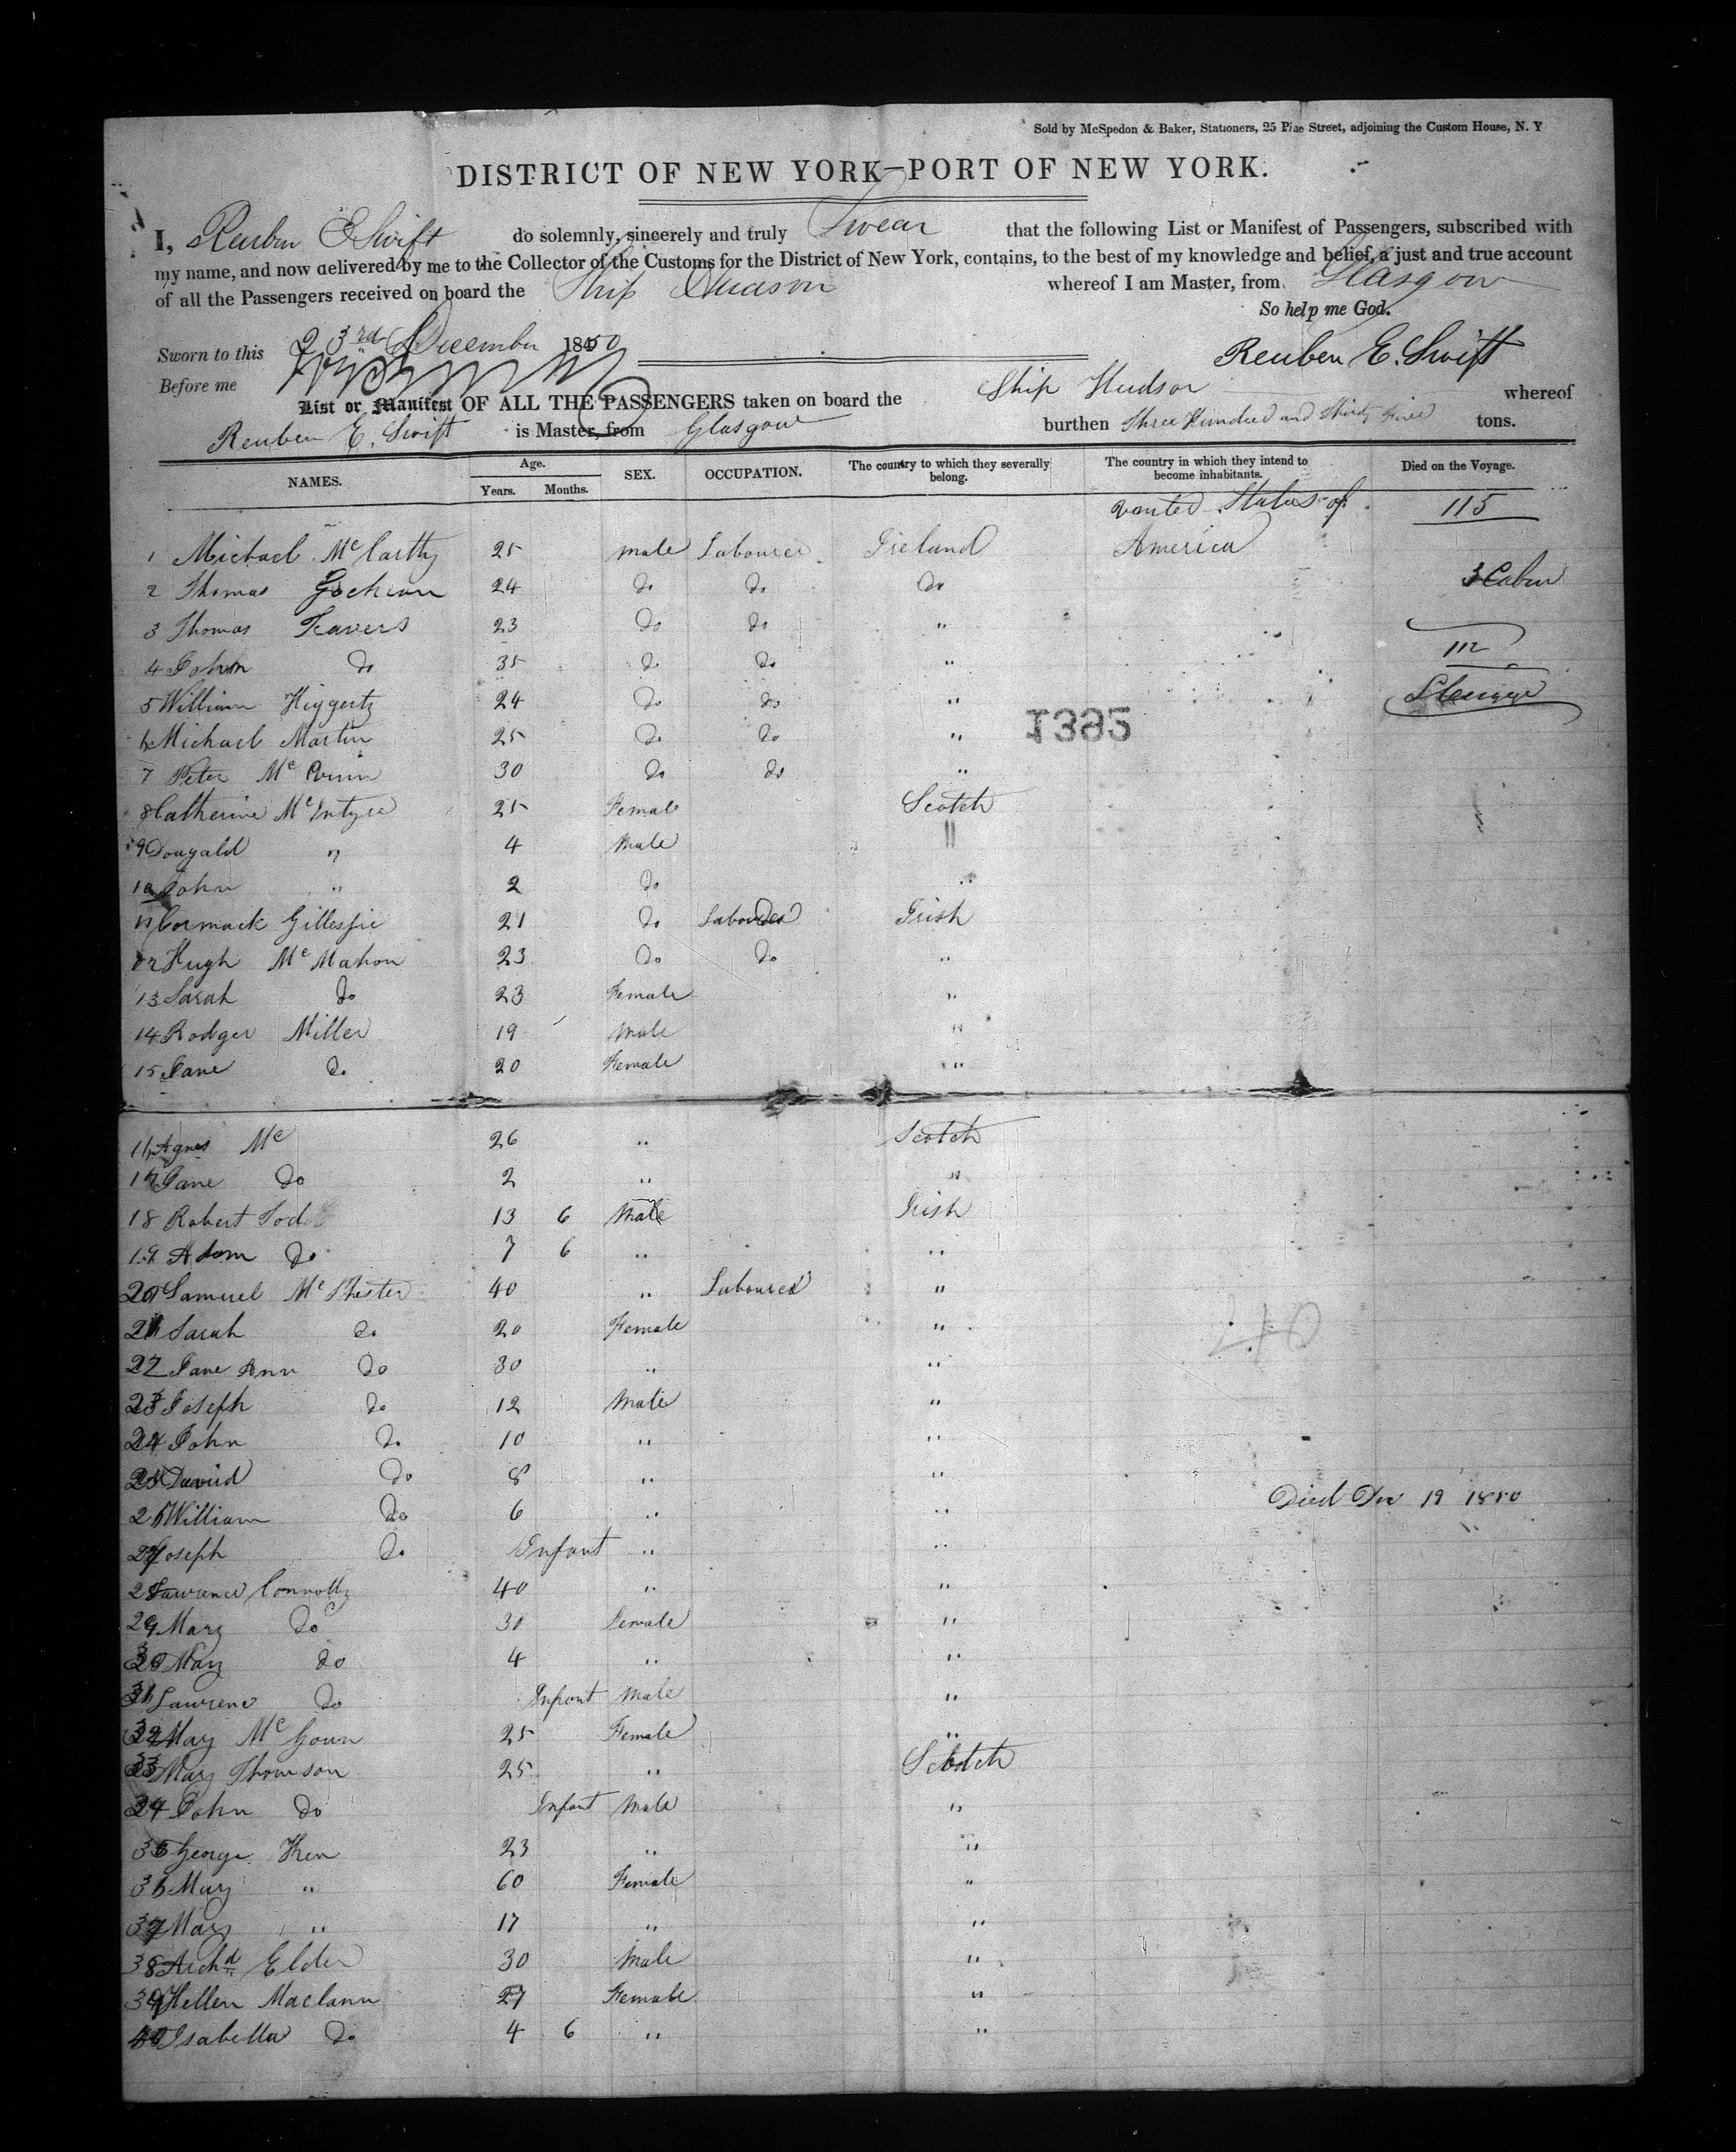 Sold by McSpedon & Baker, Stationers, 25 Pine Street, adjoining the Custom House, N. Y
DISTRICT OF NEW YORK—PORT OF NEW YORK.
I, Reuben E Swift do solemnly, sincerely and truly Swear that the following List or Manifest of Passengers, subscribed with
my name, and now delivered by me to the Collector of the Customs for the District of New York, contains, to the best of my knowledge and belief, a just and true account
of all the Passengers received on board the Ship Hudson whereof I am Master, from Glasgow
So help me God.
Sworn to this 23rd December 1850
Reuben E. Swift
Before me
List or Manifest OF ALL THE PASSENGERS taken on board the Ship Hudson whereof
Reuben E. Swift is Master, from Glasgow burthen Three Hundred and Thirty Five tons.
NAMES. Age. Years. Months. SEX. OCCUPATION. The country to which they severally belong. The country in which they intend to become inhabitants. Died on the Voyage.
United States of 115
1 Michael McCarthy 25 male Labourer Ireland America
2 Thomas 24 do do do 3 Cabin
3 Thomas Travers 23 do do "
4 John do 35 do do " 112
5 William Higgerty 24 do do " Steerage
6 Michael Martin 25 do do " 1395
7 Peter Mc 30 do do "
8 Catherine McIntyre 25 Female Scotch
9 Dougald " 4 Male "
10 John " 2 do "
11 Cormack Gillespie 21 do Labourer Irish
12 Hugh McMahon 23 do do "
13 Sarah do 23 Female "
14 Rodger Miller 19 Male "
15 Jane do 20 Female "
16 Agnes Mc 26 " Scotch
17 Jane do 2 " "
18 Robert Tod 13 6 Male Irish
19 Adam do 7 6 " "
20 Samuel Mc 40 " Labourer "
21 Sarah do 20 Female "
22 Jane Ann do 30 " "
23 Joseph do 12 Male "
24 John do 10 " "
25 David do 8 " "
26 William do 6 " " Died Dec 19 1850
27 Joseph do Infant " "
28 Lawrence Connolly 40 " "
29 Mary do 30 Female "
30 Mary do 4 " "
31 Lawrence do Infant Male "
32 Mary McGoun 25 Female "
33 Mary Thomson 25 " Scotch
34 John do Infant Male "
35 George Kerr 23 " "
36 Mary " 60 Female "
37 Mary " 17 " "
38 Archd Elder 30 Male "
39 Hellen Maclann 27 Female "
40 Isabella do 4 6 " "